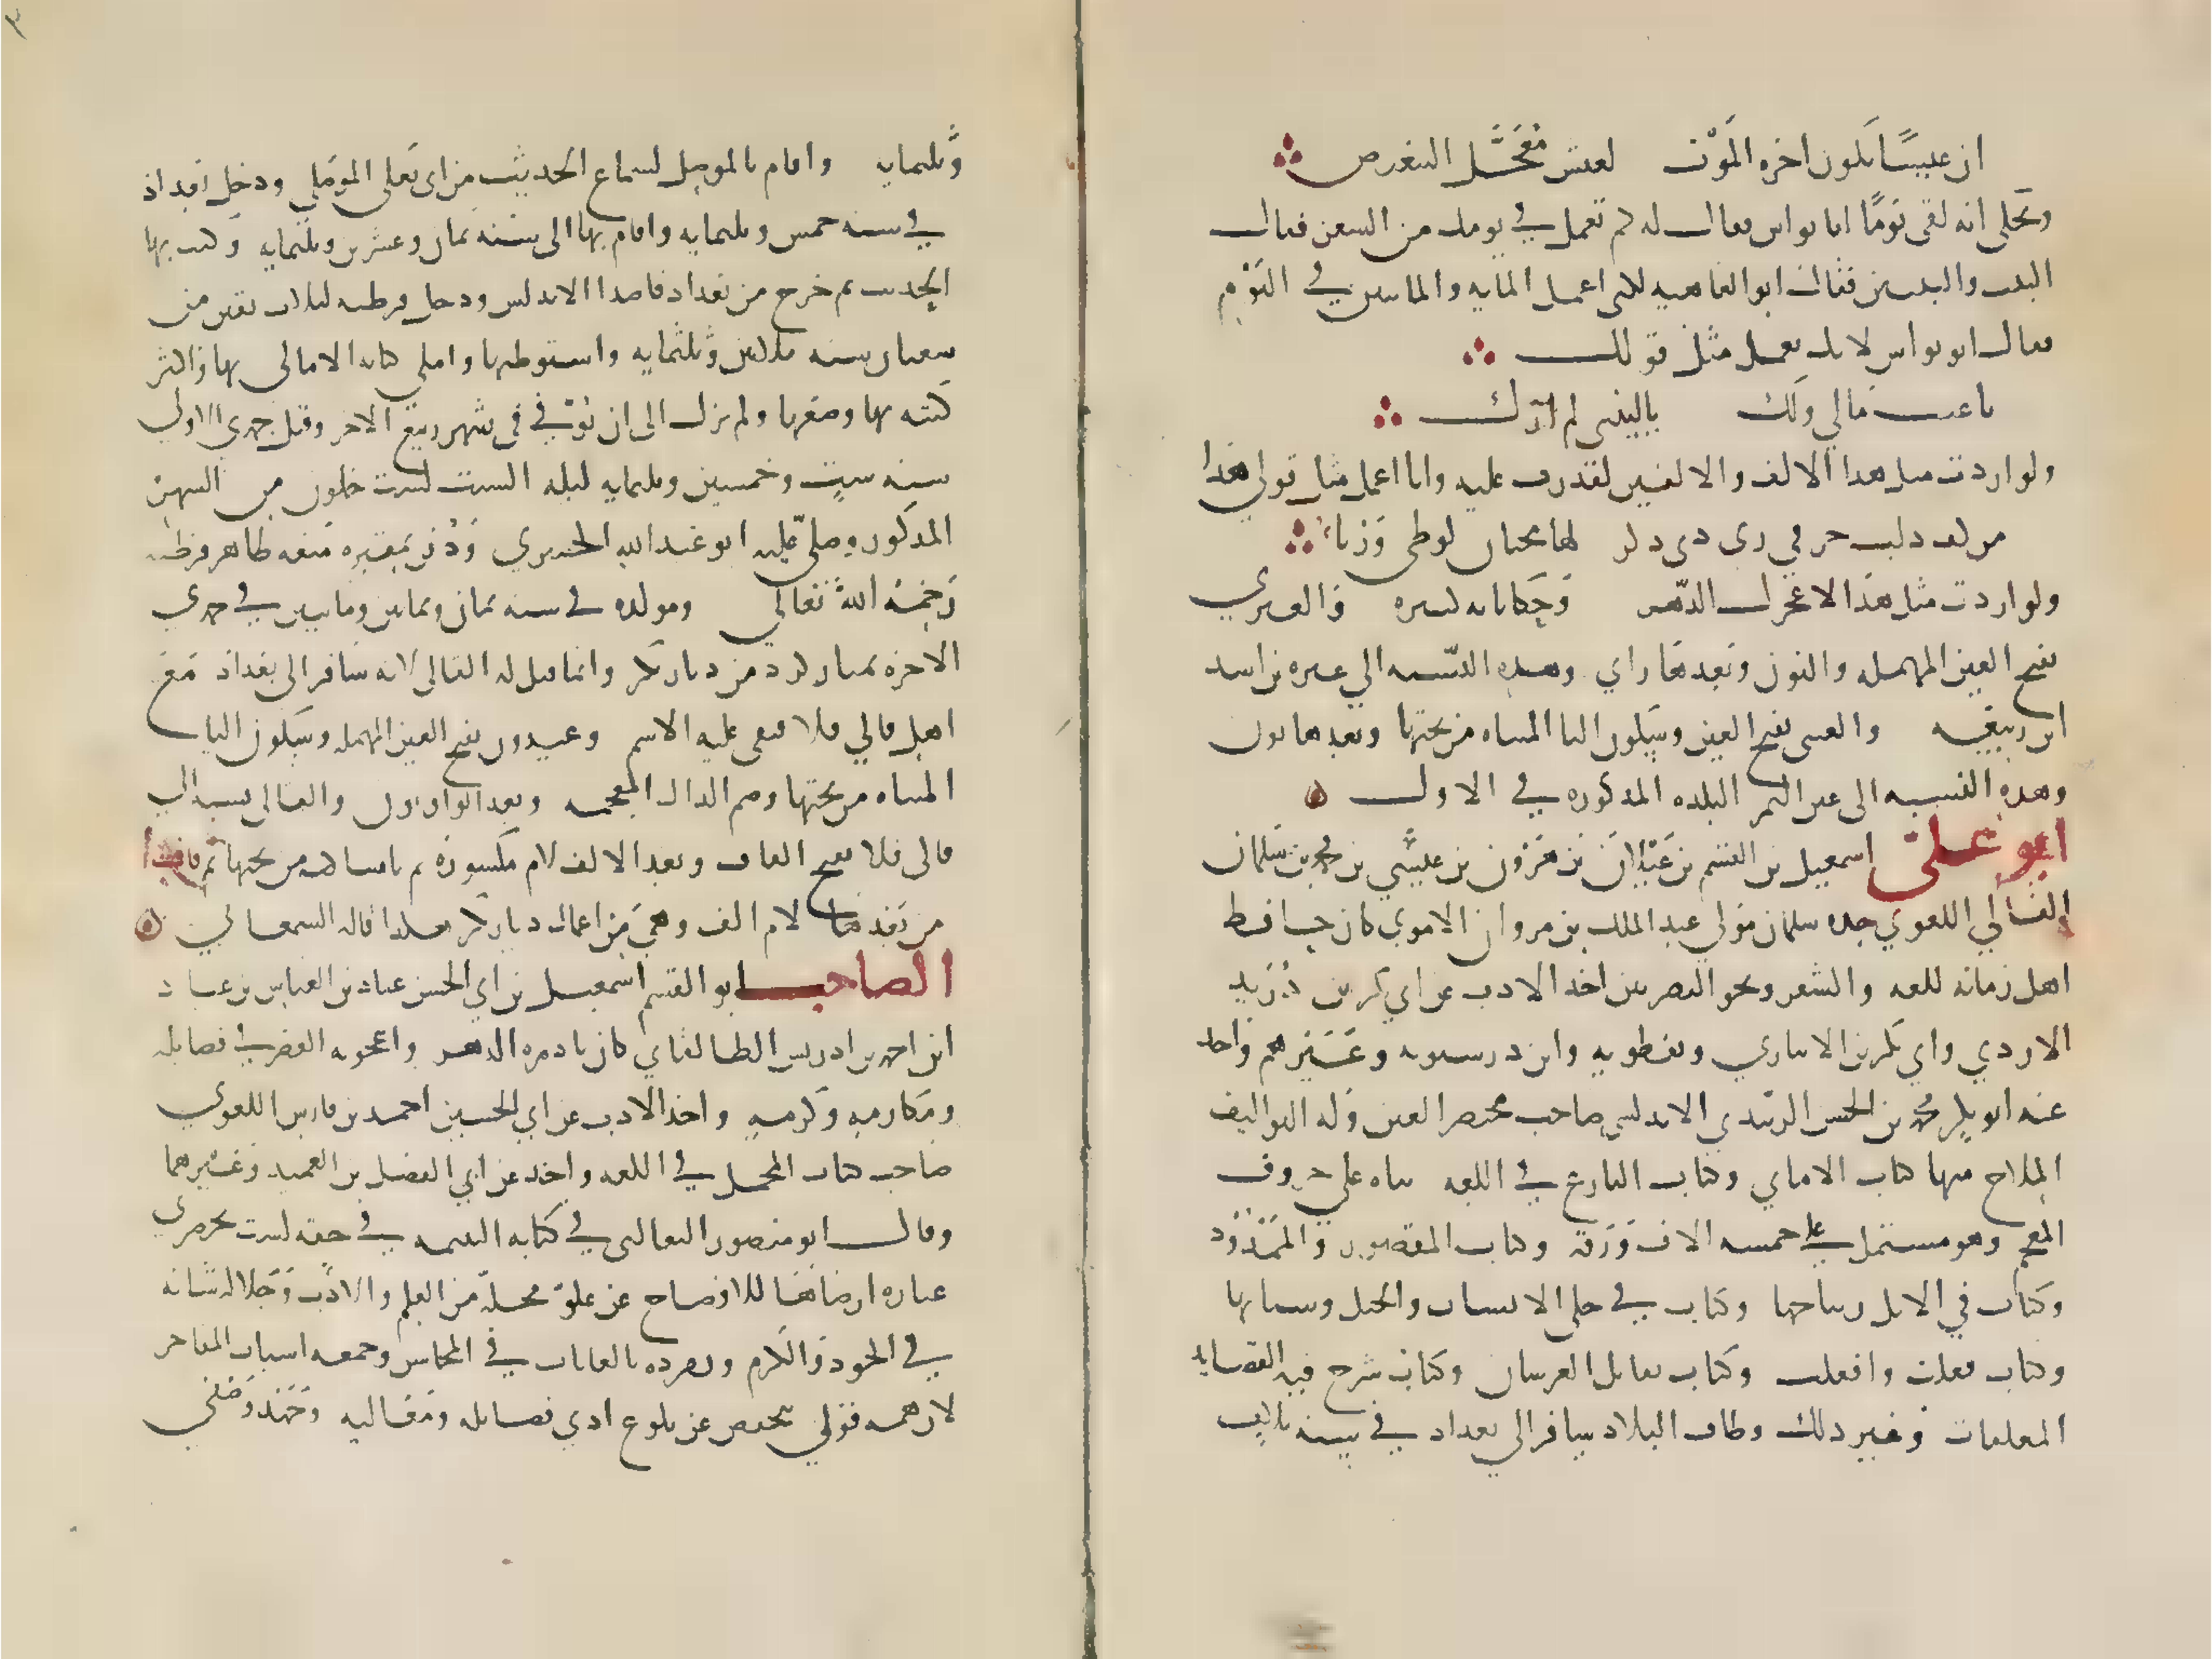 ان عيشا يكون اخره الموت لعيش معجل التنغيص
وحكى انه لقى يوما ابا نواس فقال له كم تعمل في يومك من الشعر فقال
البيت والبيتين فقال ابو العتاهيه لكني اعمل المايه والمايتين في اليوم
فقال ابو نواس لانك تعمل مثل قولك
يا عتب مالي ولك ياليتني لم ارك
ولو اردت مثل هذا الالف والالفين لقدرت عليه وانا اعمل مثل قولي هذا
من كف ذات حر في زي ذي ذكر لها محبان لوطي وزناء
ولو اردت مثل هذا لاعجزك الدهر وحكاياته كثيره والعنزي
بفتح العين المهمله والنون وبعدها زاي وهذه النسبه الي عنزه بن اسد
ابن ربيعه والعيني بفتح العين وسكون اليا المثناه من تحتها وبعدها نون
وهذه النسبه الى عين التمر البلده المذكوره في الاول
ابو علي اسمعيل بن القسم بن عيذون بن هرون بن عيسي بن محمد بن سلمان
القالي اللغوي جده سلمان مولي عبد الملك بن مروان الاموي كان حافظ
اهل زمانه للغه والشعر ونحو البصريين اخذ الادب عن ابي بكر بن دريد
الازدي وابي بكر بن الانباري ونفطويه وابن درستويه وغيرهم واخذ
عنه ابو بكر محمد بن الحسن الزبيدي الاندلسي صاحب مختصر العين وله التواليف
الملاح منها كتاب الامالي وكتاب البارع في اللغه بناه علي حروف
المعجم وهو مشتمل على خمسه الاف ورقه وكتاب المقصور والممدود
وكتاب في الابل ونتاجها وكتاب في حلى الانسان والخيل وشياتها
وكتاب فعلت وافعلت وكتاب مقاتل الفرسان وكتاب شرح فيه القصايد
المعلقات وغير ذلك وطاف البلاد سافر الي بغداد في سنه ثلاث
وثلثمايه واقام بالموصل لسماع الحديث من ابي يعلى الموصلي ودخل بغداد
في سنه خمس وثلثمايه واقام بها الى سنه ثمان وعشرين وثلثمايه وكتب بها
الحديث ثم خرج من بغداد قاصدا الاندلس ودخل قرطبه لثلاث بقين من
شعبان سنه ثلاثين وثلثمايه واستوطنها واملي كتابه الامالى بها واكثر
كتبه بها وضعها ولم يزل الى ان توفي في شهر ربيع الاخر وقيل جمدي الاولى
سنه ست وخمسين وثلثمايه ليله السبت لست خلون من الشهر
المذكور وصلي عليه ابو عبد الله الجبيري ودفن بمقبره متعه ظاهر قرطبه
رحمه الله تعالي ومولده في سنه ثمان وثمانين ومايتين في جمدي
الاخره بمنازكرد من ديار بكر وانما قيل له القالي لانه سافر الى بغداد مع
اهل قالي قلا فبقي عليه الاسم وعيذون بفتح العين المهمله وسكون اليا
المثناه من تحتها وضم الذال المعجمه وبعد الواو نون والقالي نسبه الي
قالى قلا بفتح القاف وبعد الالف لام مكسوره ثم يا مثناه من تحتها ثم قاف
من بعدها لام الف وهي من اعمال ديار بكر هكذا قاله السمعاني
الصاحب ابو القسم اسمعيل بن ابي الحسن عباد بن العباس بن عباد
ابن احمد بن ادريس الطالقاني كان نادره الدهر واعجوبه العصر في فضايله
ومكارمه وكرمه واخذ الادب عن ابي الحسين احمد بن فارس اللغوي
صاحب كتاب المجمل في اللغه واخذ عن ابي الفضل بن العميد وغيرهما
وقال ابو منصور الثعالبي في كتابه اليتيمه في حقه ليست تحضرني
عباره ارضاها للافصاح عن علو محله من العلم والادب وجلاله شانه
في الجود والكرم وتفرده بالغايات في المحاسن وجمعه اسباب المفاخر
لان همه قولي تنخفض عن بلوغ ادني فضايله ومعاليه وجهد وصفي